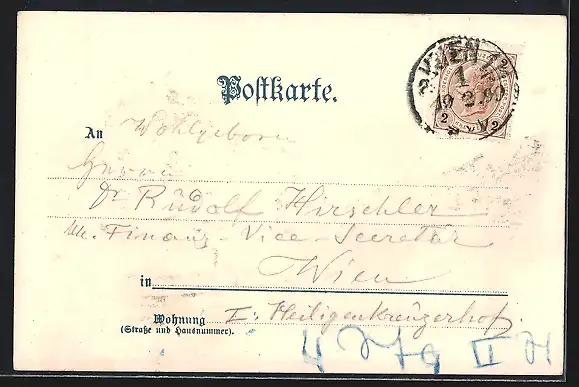 Postkarte.
WIEN 1/1
1
19 2.90
2 2
An Wohlgeboren
Herrn
Dr Rudolf Hirschler
Finanz-Vice-Secretär
in Wien
Wohnung I: Heiligenkreuzerhof.
(Straße und Hausnummer).
4 II